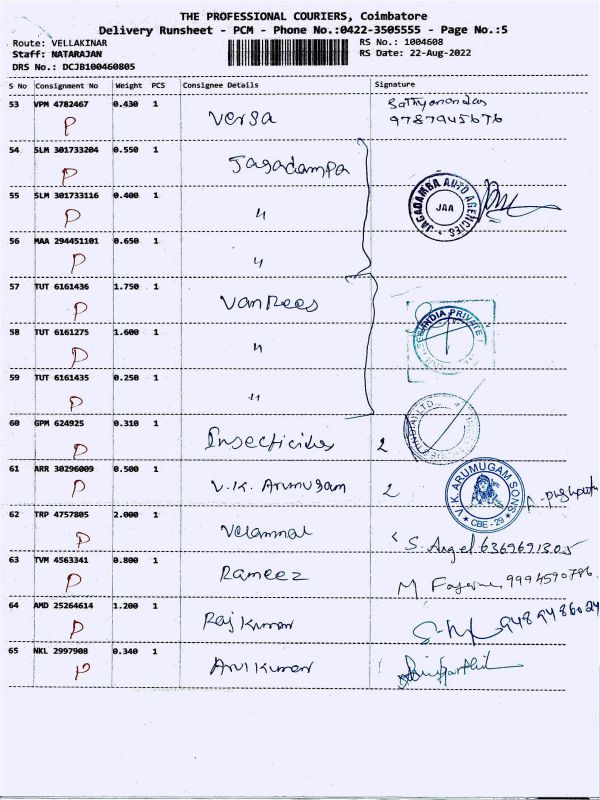 THE PROFESSIONAL COURIERS, Coimbatore
Delivery Runsheet - PCM - Phone No.:0422-3505555 - Page No.:5
Route: VELLAKINAR RS No.: 1004608
Staff: NATARAJAN RS Date: 22-Aug-2022
DRS No.: DCJB100460805
S No Consignment No Weight PCS Consignee Details Signature
53 VPM 4782467 0.430 1 Versa Sathyanandan
P 9787945676
54 SLM 301733204 0.550 1 Jagadampa
P
55 SLM 301733116 0.400 1 " JAGADAMBA AUTO AGENCIES JAA
P
56 MAA 294451101 0.650 1 "
P
57 TUT 6161436 1.750 1 VanRees
P INDIA PRIVATE
58 TUT 6161275 1.600 1 "
P
59 TUT 6161435 0.250 1 "
P
60 GPM 624925 0.310 1 Insecticides 2 LTD
P
61 ARR 30296009 0.500 1 V.K. Arumugam 2 V.K. ARUMUGAM SONS CBE-29
P
62 TRP 4757805 2.000 1 Velammal S. Angel 6369691305
P
63 TVM 4563341 0.800 1 Rameez M 9994590786
P
64 AMD 25264614 1.200 1 Raj Kumar 9489486024
P
65 NKL 2997908 0.340 1 Arul Kumar
P